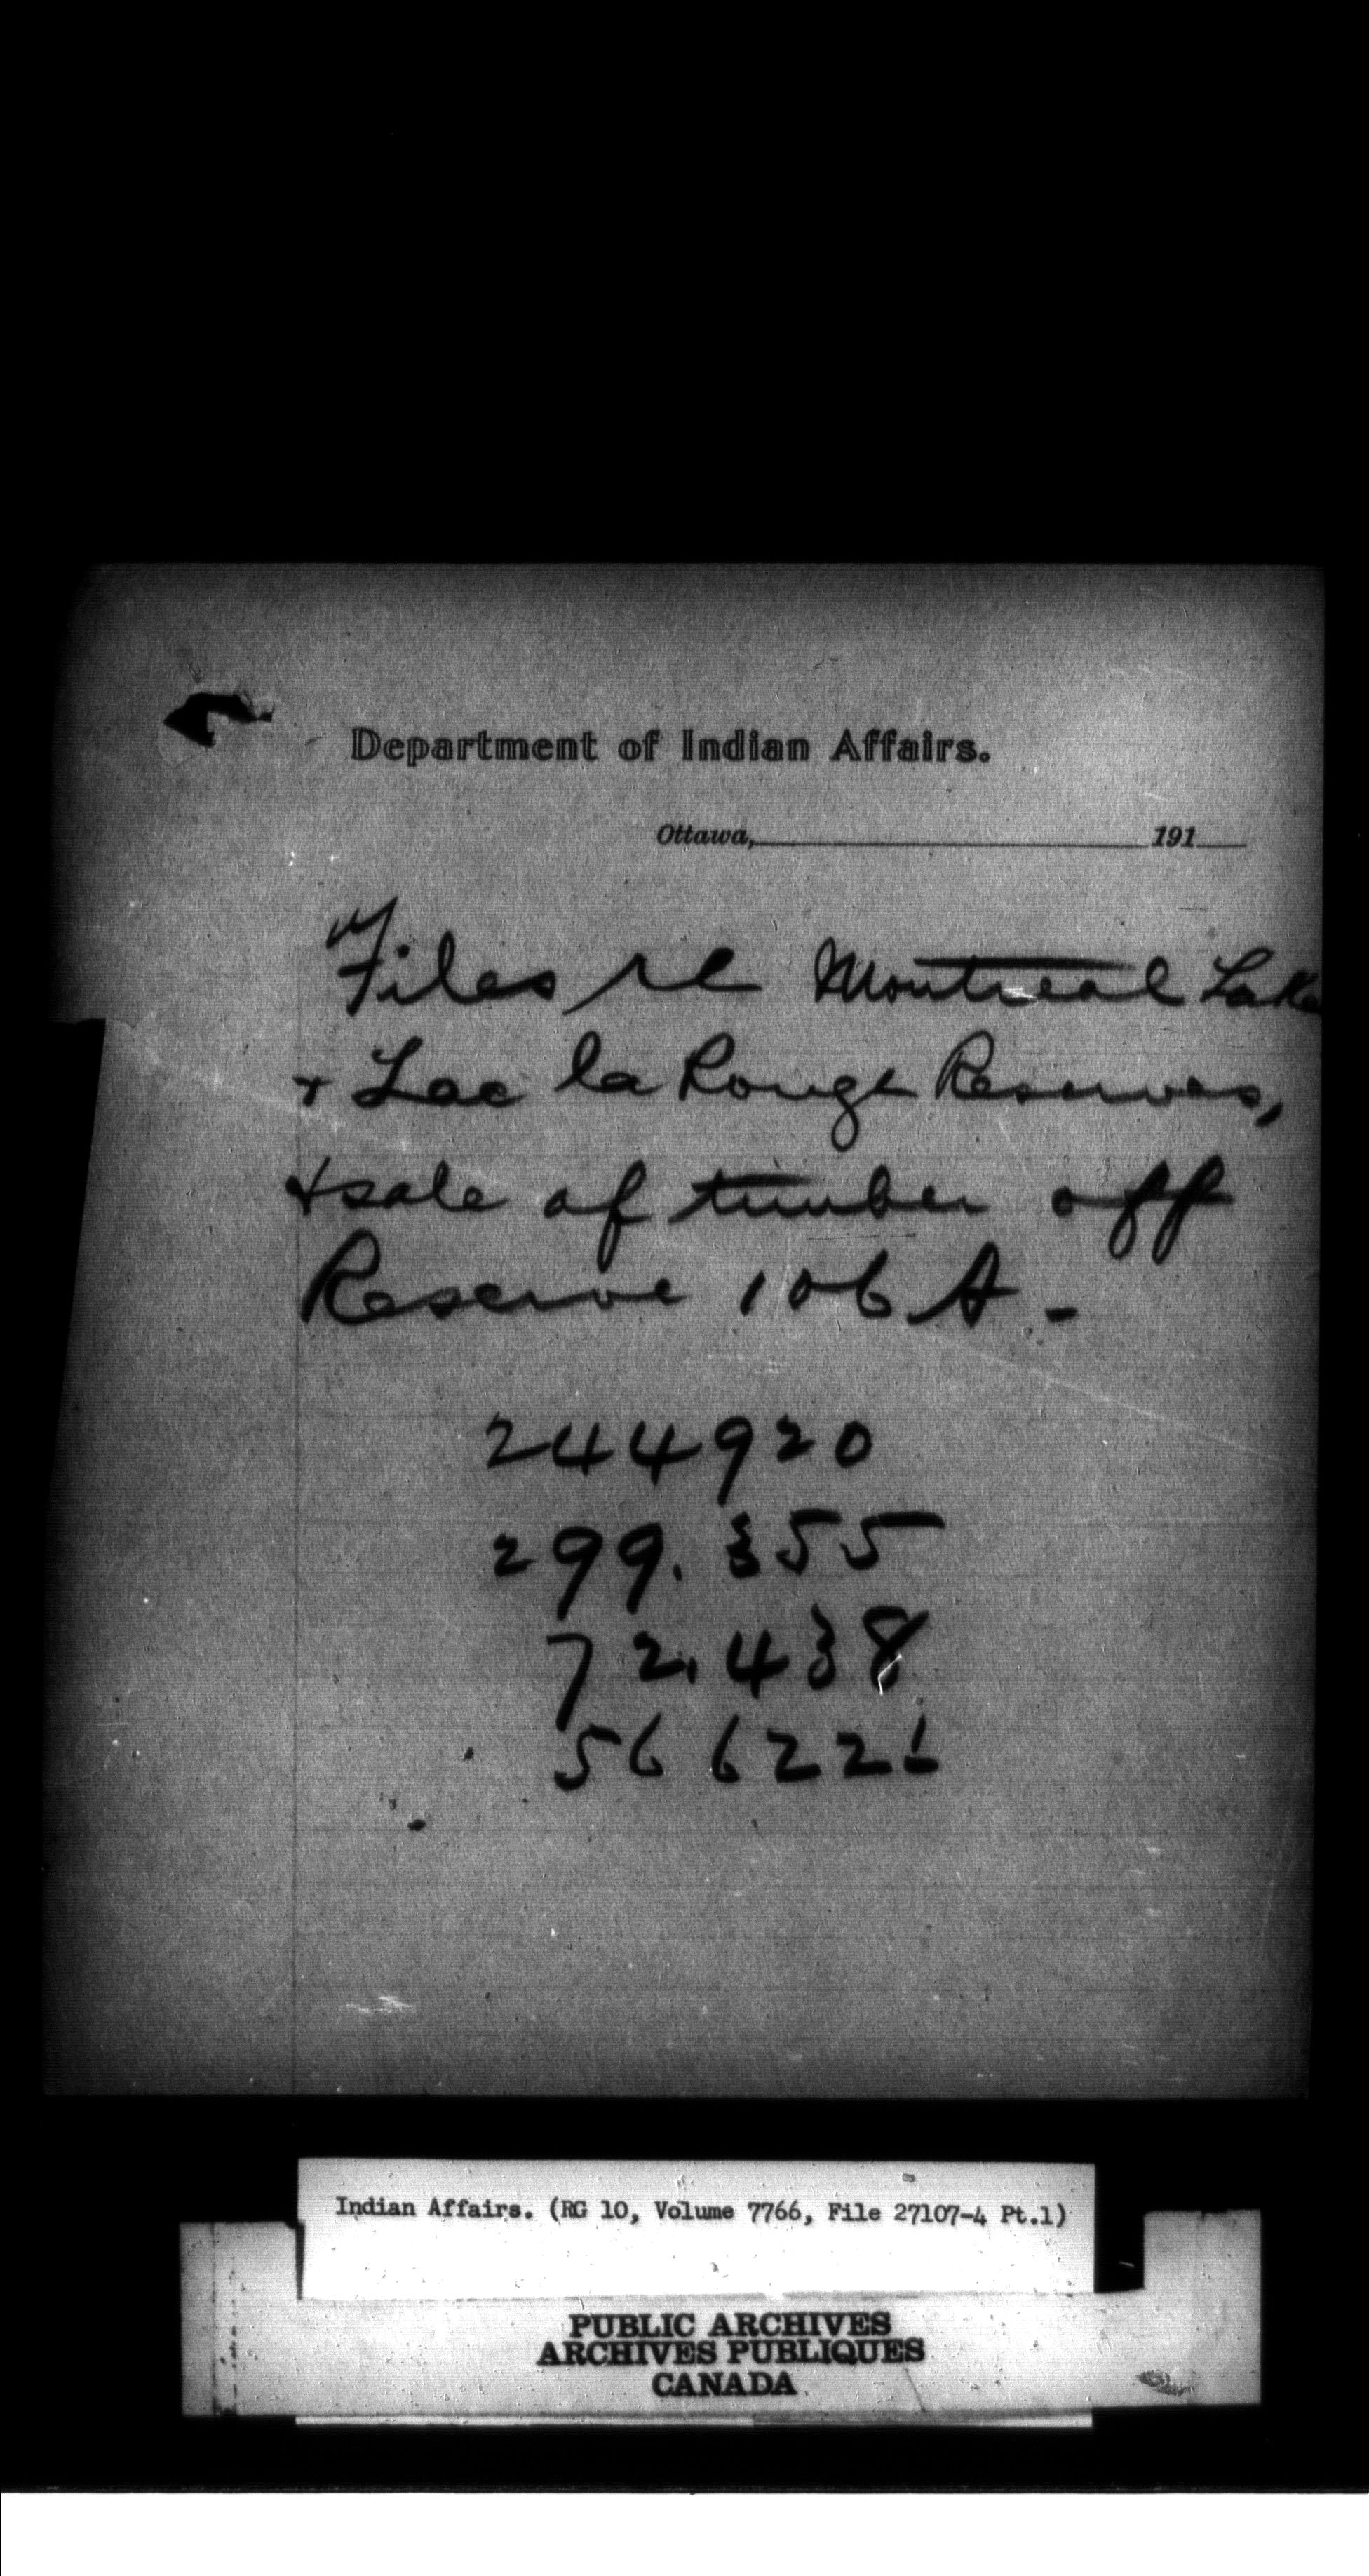 Department of Indian Affairs.
Ottawa, 191
Files re Montreal Lake
+ Lac la Ronge Reserves,
+ sale of timber off
Reserve 106 A -
244920
299.355
72.438
566226
Indian Affairs. (RG 10, Volume 7766, File 27107-4 Pt.1)
PUBLIC ARCHIVES
ARCHIVES PUBLIQUES
CANADA